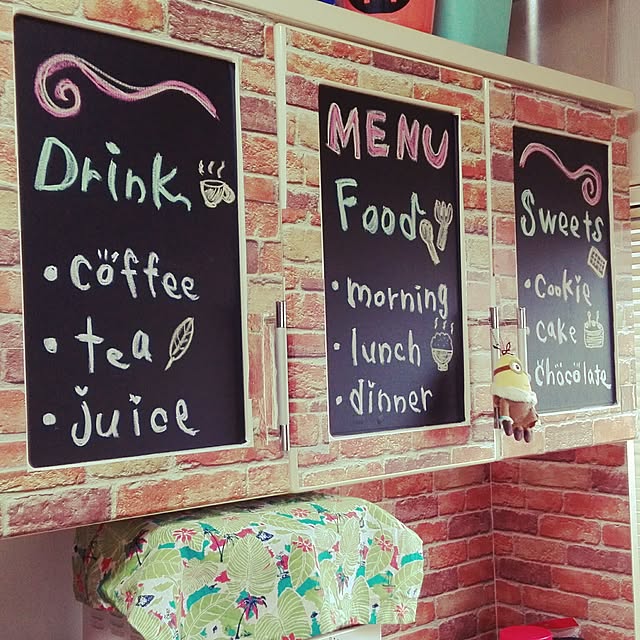 Drink
• coffee
• tea
• juice
MENU
Food
• morning
• lunch
• dinner
Sweets
• cookie
• cake
• chocolate